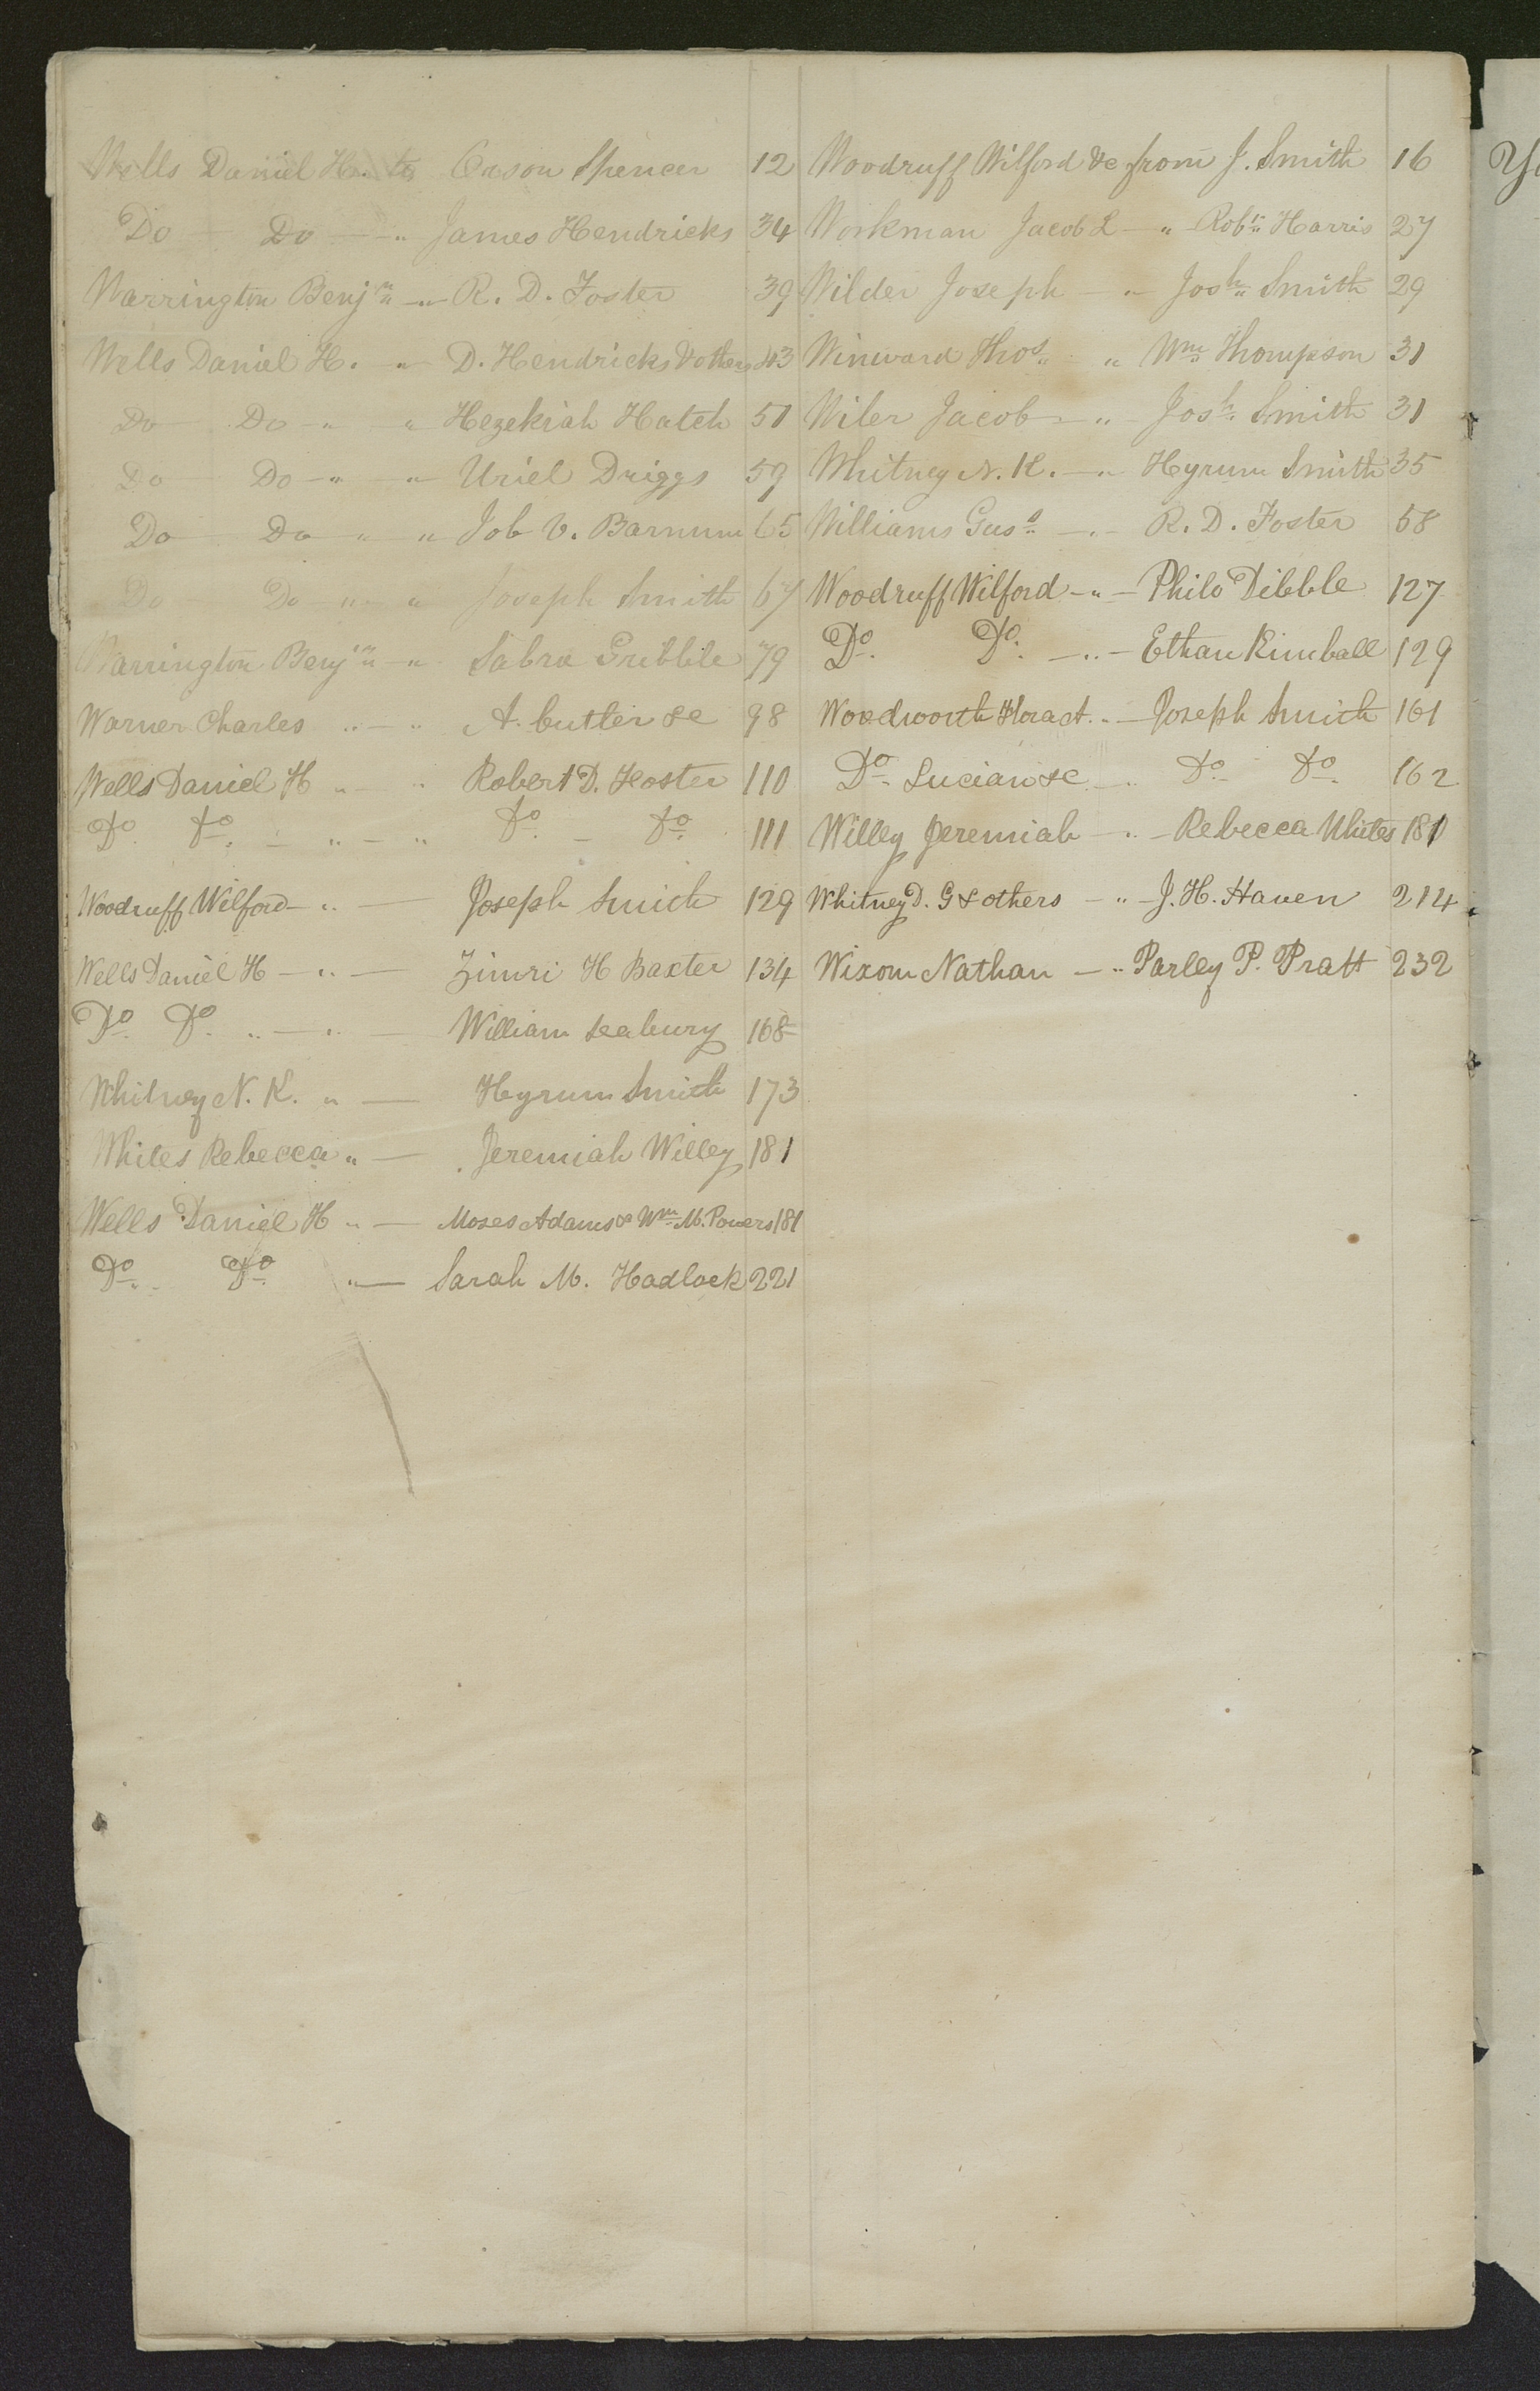 Wells Daniel H. to Orson Spencer 12
Do Do " James Hendricks 34
Warrington Benjn " R. D. Foster 39
Wells Daniel H. " D. Hendricks & others 43
Do Do " " Hezekiah Hatch 51
Do Do " " Uriel Driggs 59
Do Do " " Job V. Barnum 65
Do Do " " Joseph Smith 67
Warrington Benjn " Sabra Gribble 79
Warner Charles " " A. Cutler &c 98
Wells Daniel H " " Robert D. Foster 110
Do Do. " " Do. Do. 111
Woodruff Wilford " Joseph Smith 129
Wells Daniel H " Zimri H Baxter 134
Do. Do. " " William Seabury 168
Whitney N. K. " Hyrum Smith 173
Whites Rebecca " Jeremiah Willey 181
Wells Daniel H " Moses Adams & Wm. M. Powers 181
Do. Do. " Sarah M. Hadlock 221
Woodruff Wilford &c from J. Smith 16
Workman Jacob L " Robt. Harris 27
Wilder Joseph " Josh Smith 29
Winward Thos. " Wm Thompson 31
Wiler Jacob " Josh. Smith 31
Whitney N. K. " Hyrum Smith 35
Williams Gus. " R. D. Foster 58
Woodruff Wilford " Philo Dibble 127
Do. Do. " Ethan Kimball 129
Woodworth Flora A. " Joseph Smith 161
Do. Lucian &c " Do. Do. 162
Willey Jeremiah " Rebecca Whites 181
Whitney D. G & others " J. H. Haven 214
Wixom Nathan " Parley P. Pratt 232